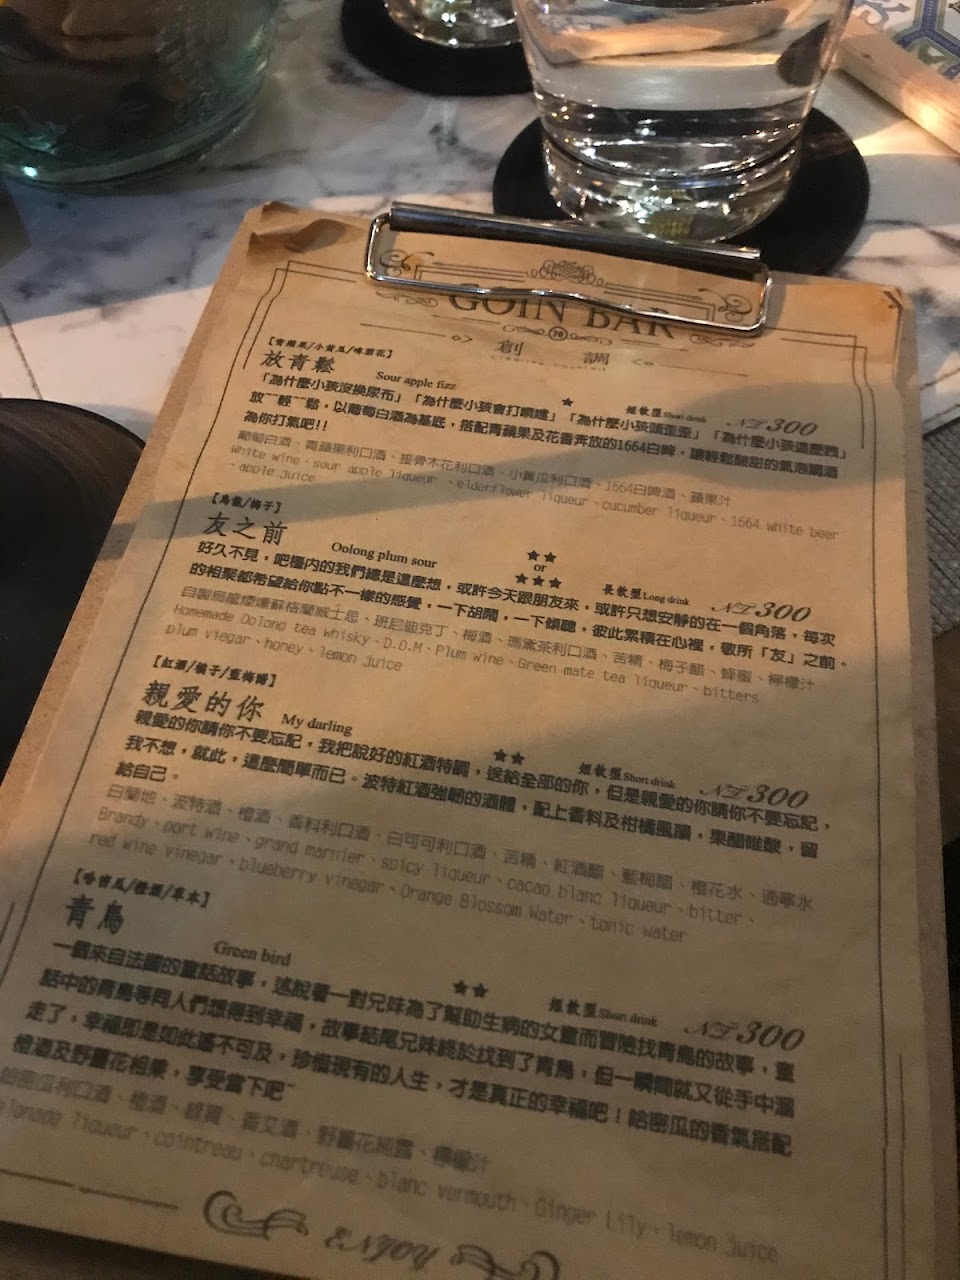 GOIN BAR
創 調
【青蘋果/小黃瓜/啤酒花】
放青鬆 Sour apple fizz ★ 短飲型 Short drink NT 300
「為什麼小孩沒換尿布」「為什麼小孩會打噴嚏」「為什麼小孩頭歪歪」「為什麼小孩這麼跩」
放~~輕~~鬆,以葡萄白酒為基底,搭配青蘋果及花香奔放的1664白啤,讓輕鬆酸甜的氣泡調酒
為你打氣吧!!
葡萄白酒、青蘋果利口酒、接骨木花利口酒、小黃瓜利口酒、1664白啤酒、蘋果汁
White wine、sour apple liqueur、elderflower liqueur、cucumber liqueur、1664 white beer
、apple juice
【烏龍/梅子】
友之前 Oolong plum sour ★★ or ★★★ 長飲型 Long drink NT 300
好久不見,吧檯內的我們總是這麼想,或許今天跟朋友來,或許只想安靜的在一個角落,每次
的相聚都希望給你點不一樣的感覺,一下胡鬧,一下傾聽,彼此累積在心裡,敬所「友」之前。
自製烏龍煙燻蘇格蘭威士忌、班尼迪克丁、梅酒、瑪黛茶利口酒、苦精、梅子醋、蜂蜜、檸檬汁
Homemade Oolong tea whisky、D.O.M、Plum wine、Green mate tea liqueur、bitters
plum viegar、honey、lemon juice
【紅酒/橘子/藍莓醋】
親愛的你 My darling ★★ 短飲型 Short drink NT 300
親愛的你請你不要忘記,我把說好的紅酒特調,送給全部的你,但是親愛的你請你不要忘記,
我不想,就此,這麼簡單而已。波特紅酒強韌的酒體,配上香料及柑橘風韻,果醋唯酸,留
給自己。
白蘭地、波特酒、橙酒、香料利口酒、白可可利口酒、苦精、紅酒醋、藍莓醋、橙花水、通寧水
Brandy、port wine、grand marnier、spicy liqueur、cacao blanc liqueur、bitter、
red wine vinegar、blueberry vinegar、Orange Blossom Water、tonic water
【哈密瓜/橙酒/草本】
青鳥 Green bird ★★ 短飲型 Short drink NT 300
一個來自法國的童話故事,述說著一對兄妹為了幫助生病的女童而冒險找青鳥的故事,童
話中的青鳥等同人們想得到幸福,故事結尾兄妹終於找到了青鳥,但一瞬間就又從手中溜
走了,幸福即是如此遙不可及,珍惜現有的人生,才是真正的幸福吧!哈密瓜的香氣搭配
橙酒及野薑花相乘,享受當下吧~
哈密瓜利口酒、橙酒、綠寶、香艾酒、野薑花純露、檸檬汁
liqueur、cointreau、chartreuse、blanc vermouth、Ginger Lily、lemon juice
ENJOY